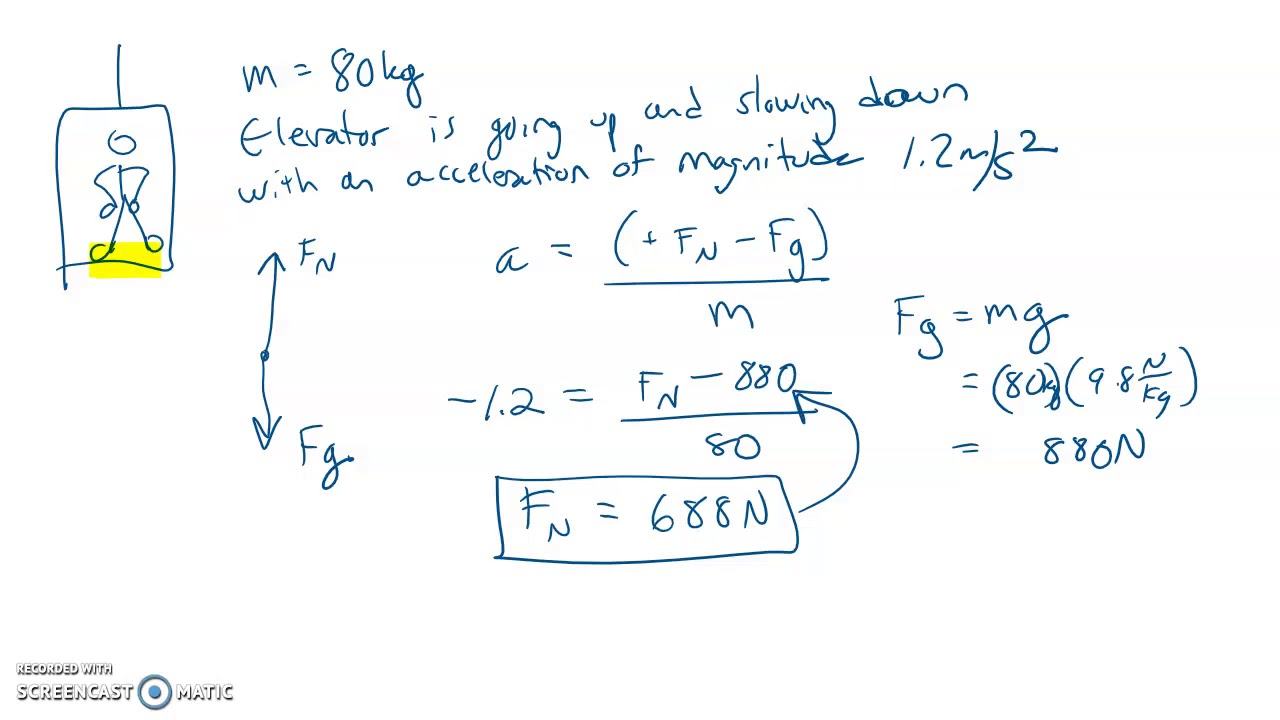 m = 80kg
Elevator is going up and slowing down
with an acceleration of magnitude 1.2 m/s²
F_N
F_g
a = (+ F_N − F_g) / m
−1.2 = (F_N − 880) / 80
F_N = 688N
F_g = mg
= (80kg)(9.8 N/kg)
= 880N
RECORDED WITH
SCREENCAST MATIC